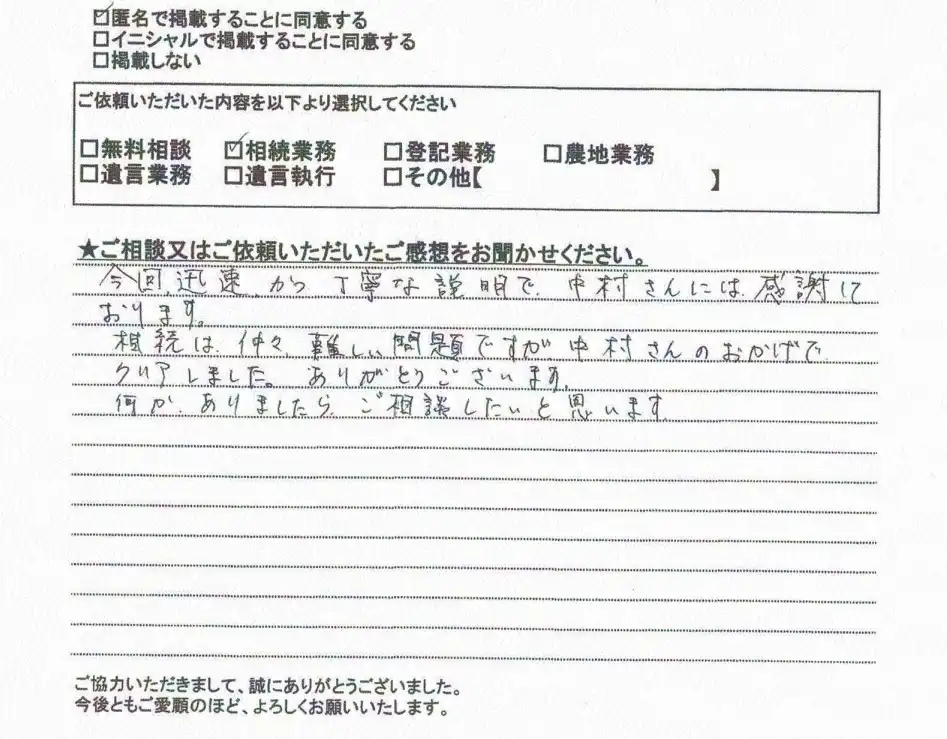 ☑匿名で掲載することに同意する
□イニシャルで掲載することに同意する
□掲載しない
ご依頼いただいた内容を以下より選択してください
□無料相談 ☑相続業務 □登記業務 □農地業務
□遺言業務 □遺言執行 □その他【 】
★ご相談又はご依頼いただいたご感想をお聞かせください。
今回、迅速、かつ丁寧な説明で、中村さんには、感謝して
おります。
相続は、仲々、難しい問題ですが中村さんのおかげで、
クリアしました。ありがとうございます。
何か、ありましたら、ご相談したいと思います。
ご協力いただきまして、誠にありがとうございました。
今後ともご愛顧のほど、よろしくお願いいたします。